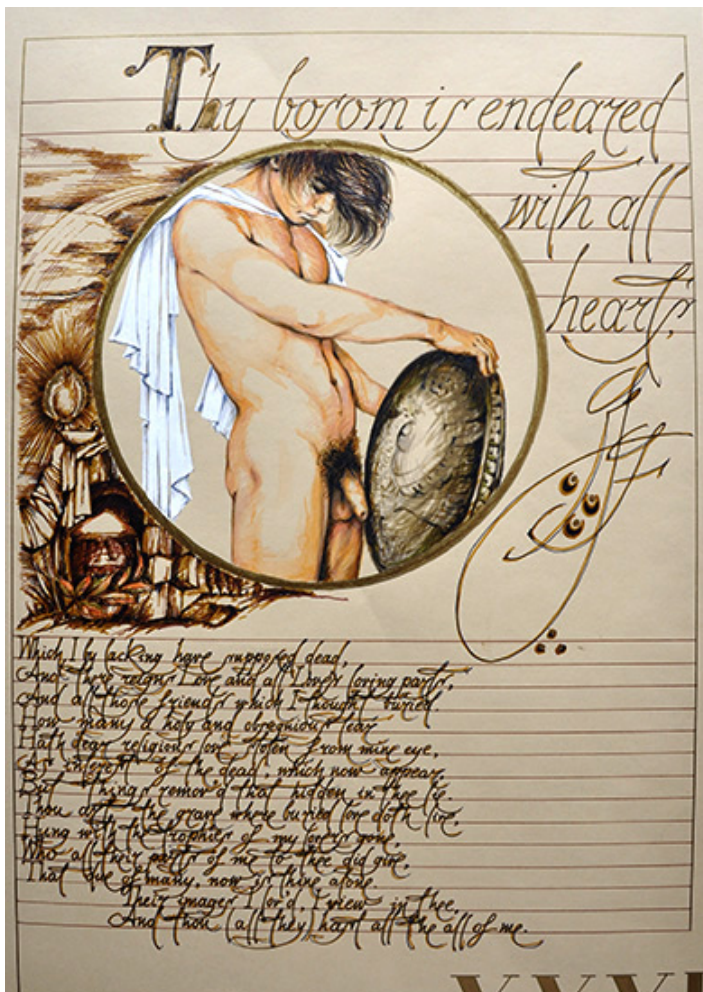 Thy bosom is endeared
with all
hearts,
Which I by lacking have supposed dead,
And there reigns Love and all Love's loving parts,
And all those friends which I thought buried.
How many a holy and obsequious tear
Hath dear religious love stolen from mine eye,
As interest of the dead, which now appear,
But things remov'd that hidden in thee lie.
Thou art the grave where buried love doth live,
Hung with the trophies of my lovers gone,
Who all their parts of me to thee did give,
That due of many, now is thine alone.
Their images I lov'd, I view in thee,
And thou (all they) hast all the all of me.